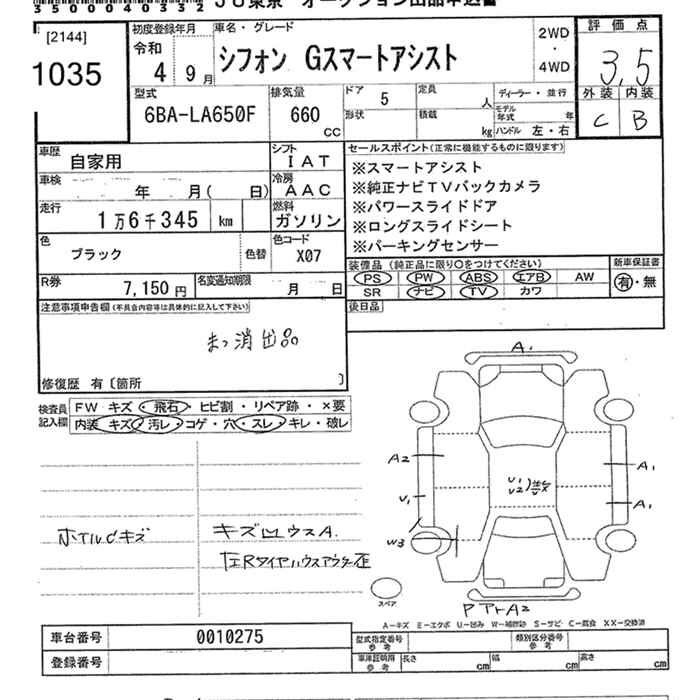 35000403332 JU東京 オークション出品申込書
[2144]
1035
初度登録年月
令和
4 9月
車名・グレード
シフォン Gスマートアシスト
2WD
・
4WD
評価点
3.5
外装 内装
C B
型式
6BA-LA650F
排気量
660
CC
ドア 5
形状
定員 人
積載 kg
ディーラー・並行
モデル年式 年
ハンドル 左・右
車歴
自家用
シフト
IAT
車検 年 月( 日)
冷房
AAC
走行
1万6千345 km
燃料
ガソリン
色
ブラック
色替
色コード
X07
R券
7,150円
名変通知期限
月 日
セールスポイント(正常に機能するものに限ります)
※スマートアシスト
※純正ナビTVバックカメラ
※パワースライドドア
※ロングスライドシート
※パーキングセンサー
装備品(純正品に限り○をつけてください)
PS PW ABS エアB AW
SR ナビ TV カワ
新車保証書
有・無
後日品
注意事項申告欄(不具合内容等は具体的に記入して下さい)
まっ消出品
修復歴 有〔箇所 〕
検査員
記入欄
FW キズ・飛石・ヒビ割・リペア跡・×要
内装 キズ・汚レ・コゲ・穴・スレ・キレ・破レ
ホイルCキズ
キズ凹ウスA.
A.
A2
U1
W3
U1
U2
A1
A1
スペア
A-キズ E-エクボ U-凹み W-補修跡 S-サビ C-腐食 XX-交換済
車台番号
0010275
登録番号
型式指定番号
参考
類別区分番号
参考
車庫証明用
参考
長さ cm
幅 cm
高さ cm